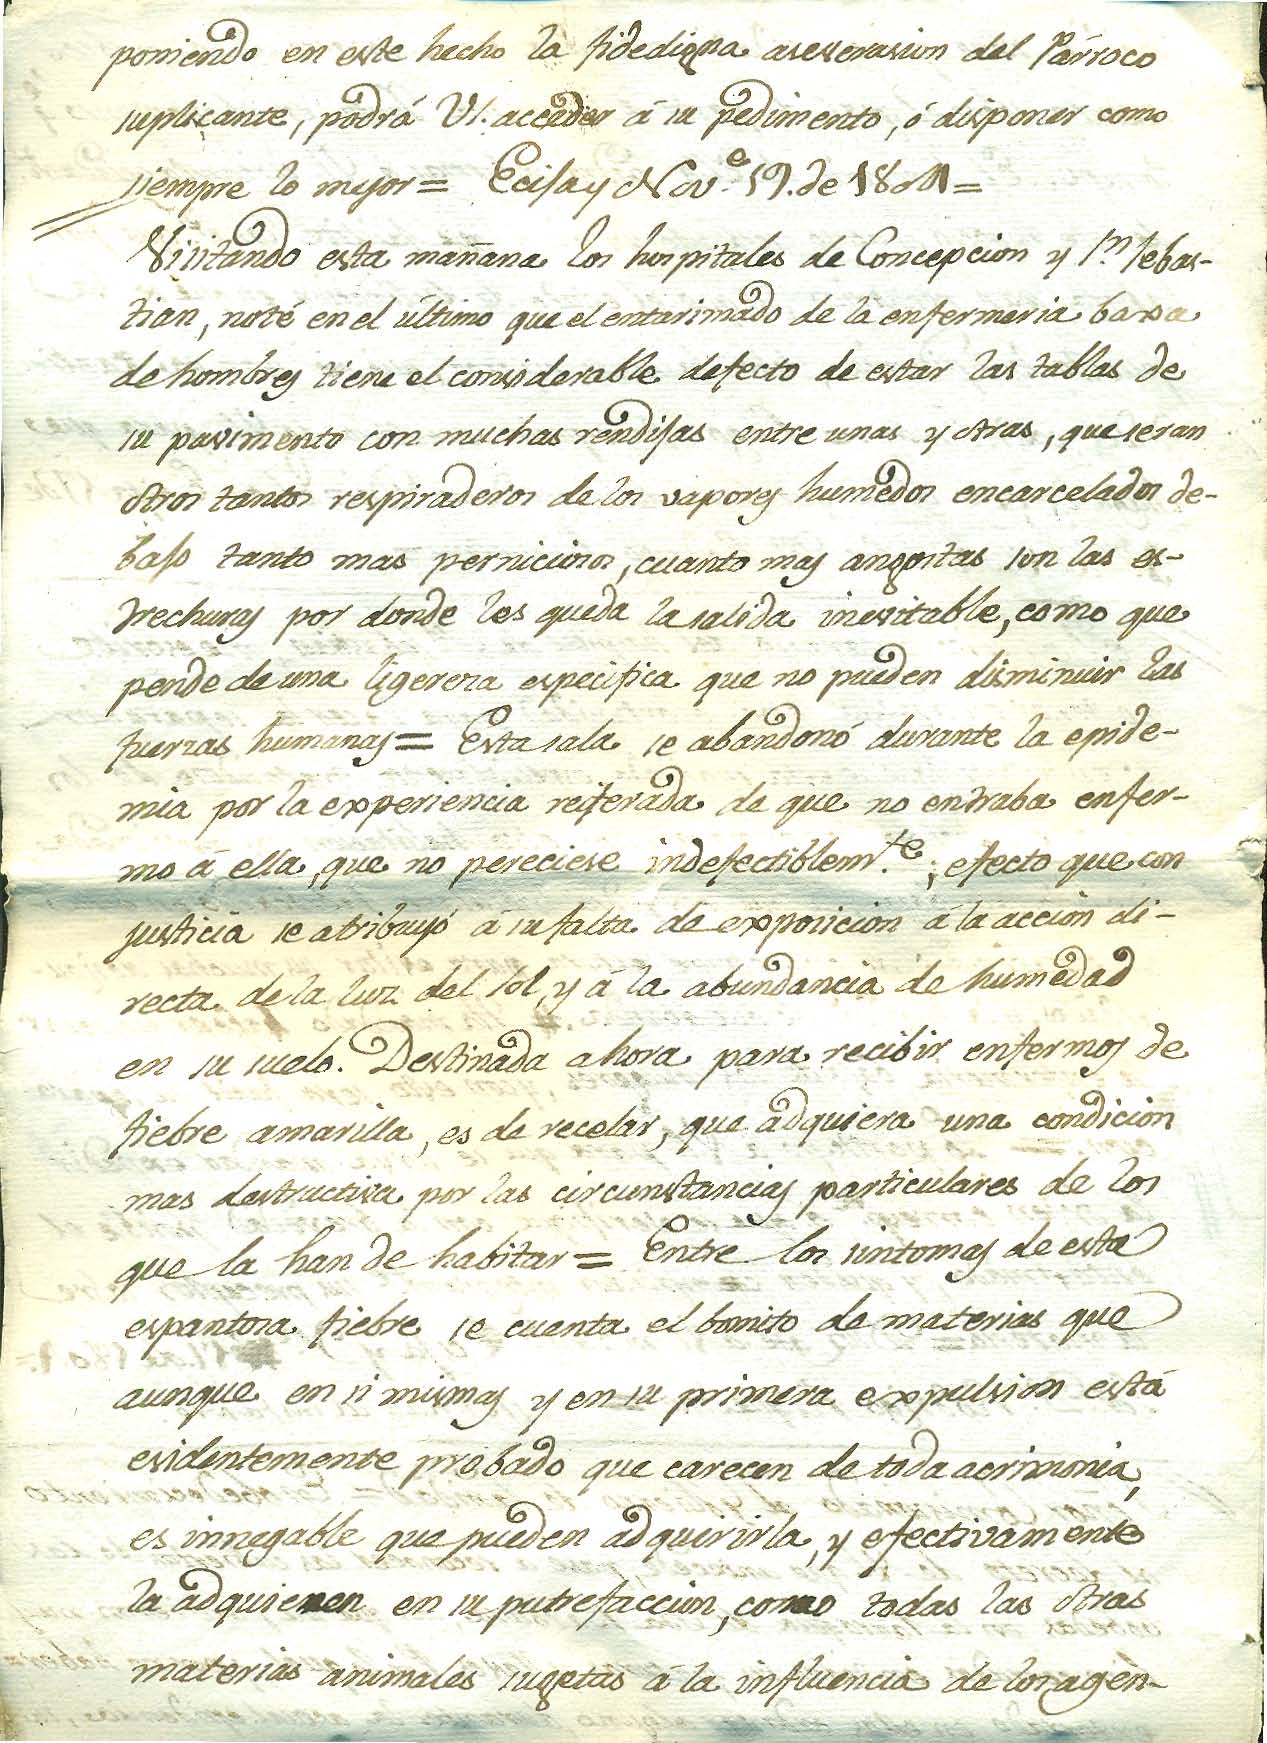 poniendo en este hecho la fidedigna aseverasion del Párroco
suplicante, podrá Vs. acceder á su pedimento, ó disponer como
siempre lo mejor = Ecija y Nov.e 19. de 18
Visitando esta mañana los hospitales de Concepcion y Sn. Sebas-
tian, noté en el último que el entarimado de la enfermeria baxa
de hombres tiene el considerable defecto de estar las tablas de
su pavimento con muchas rendijas entre unas y otras, que seran
otros tantos respiraderos de los vapores humedos encarcelados de-
bajo tanto mas perniciosos, cuanto mas angostas son las es-
trechuras por donde les queda la salida inevitable, como que
pende de una ligereza especifica que no pueden disminuir las
fuerzas humanas = Esta sala se abandonó durante la epide-
mia por la experiencia reiterada de que no entraba enfer-
mo á ella, que no pereciese indefectiblem.te; efecto que con
justicia se atribuyó á su falta de exposicion á la accion di-
recta de la luz del sol, y á la abundancia de humedad
en su suelo. Destinada ahora para recibir enfermos de
fiebre amarilla, es de recelar, que adquiera una condicion
mas destructiva por las circunstancias particulares de los
que la han de habitar = Entre los sintomas de esta
espantosa fiebre se cuenta el bomito de materias que
aunque en si mismas y en su primera expulsion está
evidentemente probado que carecen de toda acrimonia,
es innegable que pueden adquirirla, y efectivamente
la adquieren en su putrefaccion, como todas las otras
materias animales sugetas á la influencia de los agen-